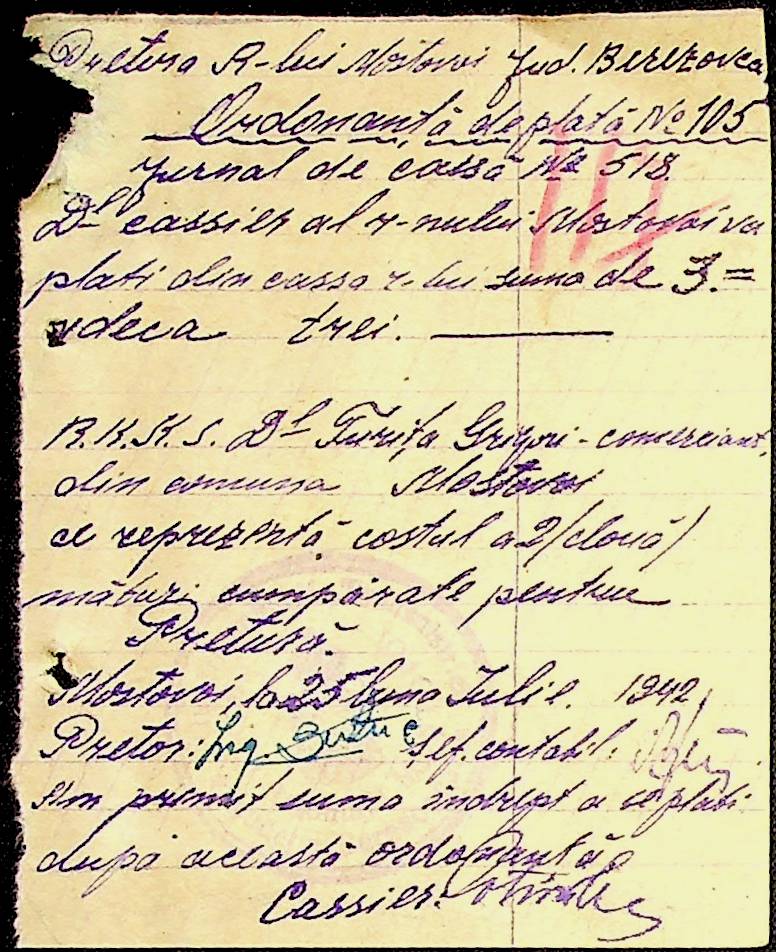 Pretura R-lui Mostovoi Jud. Berezovca
Ordonanță de plată № 105
Jurnal de cassă № 518
Dl cassier al r-nului Mostovoi va
plati din cassa r-lui suma de 3.=
adeca trei.
R.K.K.S. Dl Grigori - comerciant,
din comuna Mostovoi
ce reprezertă costul a 2 /două/
mături cumpărate pentru
Pretură.
Mostovoi, la 25 luna Iulie. 1942
Pretor: Ing. Șef. contabil.
Am primit suma indrept a o plati
după această ordonanță
Cassier: